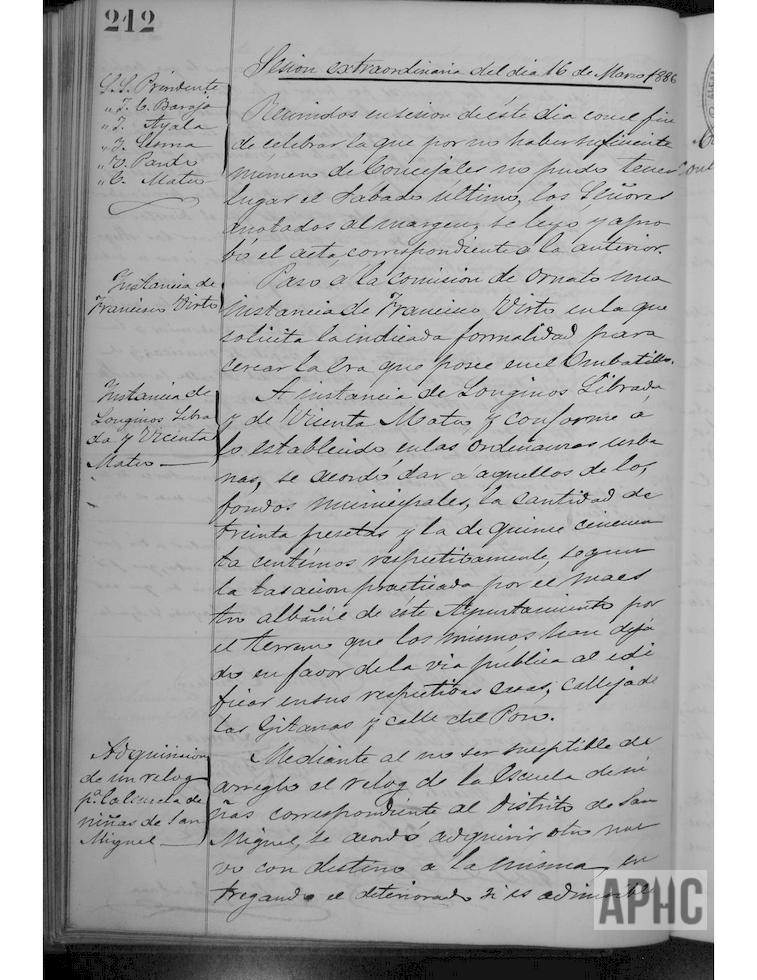 212
Sesion extraordinaria del dia 16 de Marzo 1886
S.S. Presidente
" F. C. Baroja
" F. Ayala
" J.
" V. Pardo
" C. Mateo
Reunidos en sesion de éste dia con el fin
de celebrar la que por no haber suficiente
número de Concejales no pudo tener
lugar el Sábado último, los Señores
anotados al margen, se leyó y apro
bó el acta correspondiente a la anterior.
Instancia de
Francisco Virto
Pasó á la Comision de Ornato una
instancia de Francisco Virto en la que
solicita la indicada formalidad para
cercar la Era que posee en el Ombatillo.
Instancia de
Longinos Libra
da y Vicenta
Mateo
A instancia de Longinos Librada
y de Vicenta Mateo y conforme á
lo establecido en las Ordenanzas urba
nas, se acordó dar a aquellos de los
fondos municipales, la cantidad de
treinta pesetas y la de quince cincuen
ta centimos respectivamente, segun
la tasacion practicada por el maes
tro albañil de éste Ayuntamiento por
el terreno que los mismos han deja
do en favor de la via pública al edi
ficar en sus respectivas casas, calleja de
las Gitanas y calle del Pozo.
Adquisicion
de un relog
pª la Escuela de
niñas de San
Miguel
Mediante al no ser suceptible de
arreglo el relog de la Escuela de ni
ñas correspondiente al Distrito de San
Miguel, se acordó adquirir otro nue
vo con destino a la misma, en
tregando el deteriorado si es admisible
APHC